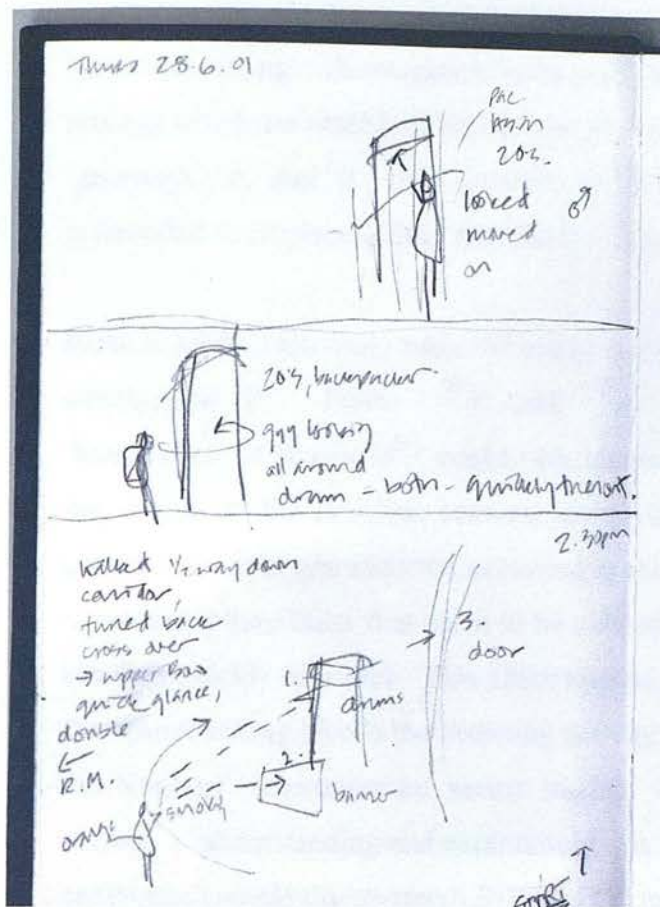 Thurs 28.6.01
20's.
looked
moved
on
20's, backpacker
guy looking
all around
drum - both - quickly then out.
2.30pm
walked 1/2 way down
corridor,
turned back
cross over
→ upper box
quick glance,
double
←
R.M.
1.
drums
3.
door
2.
barrier